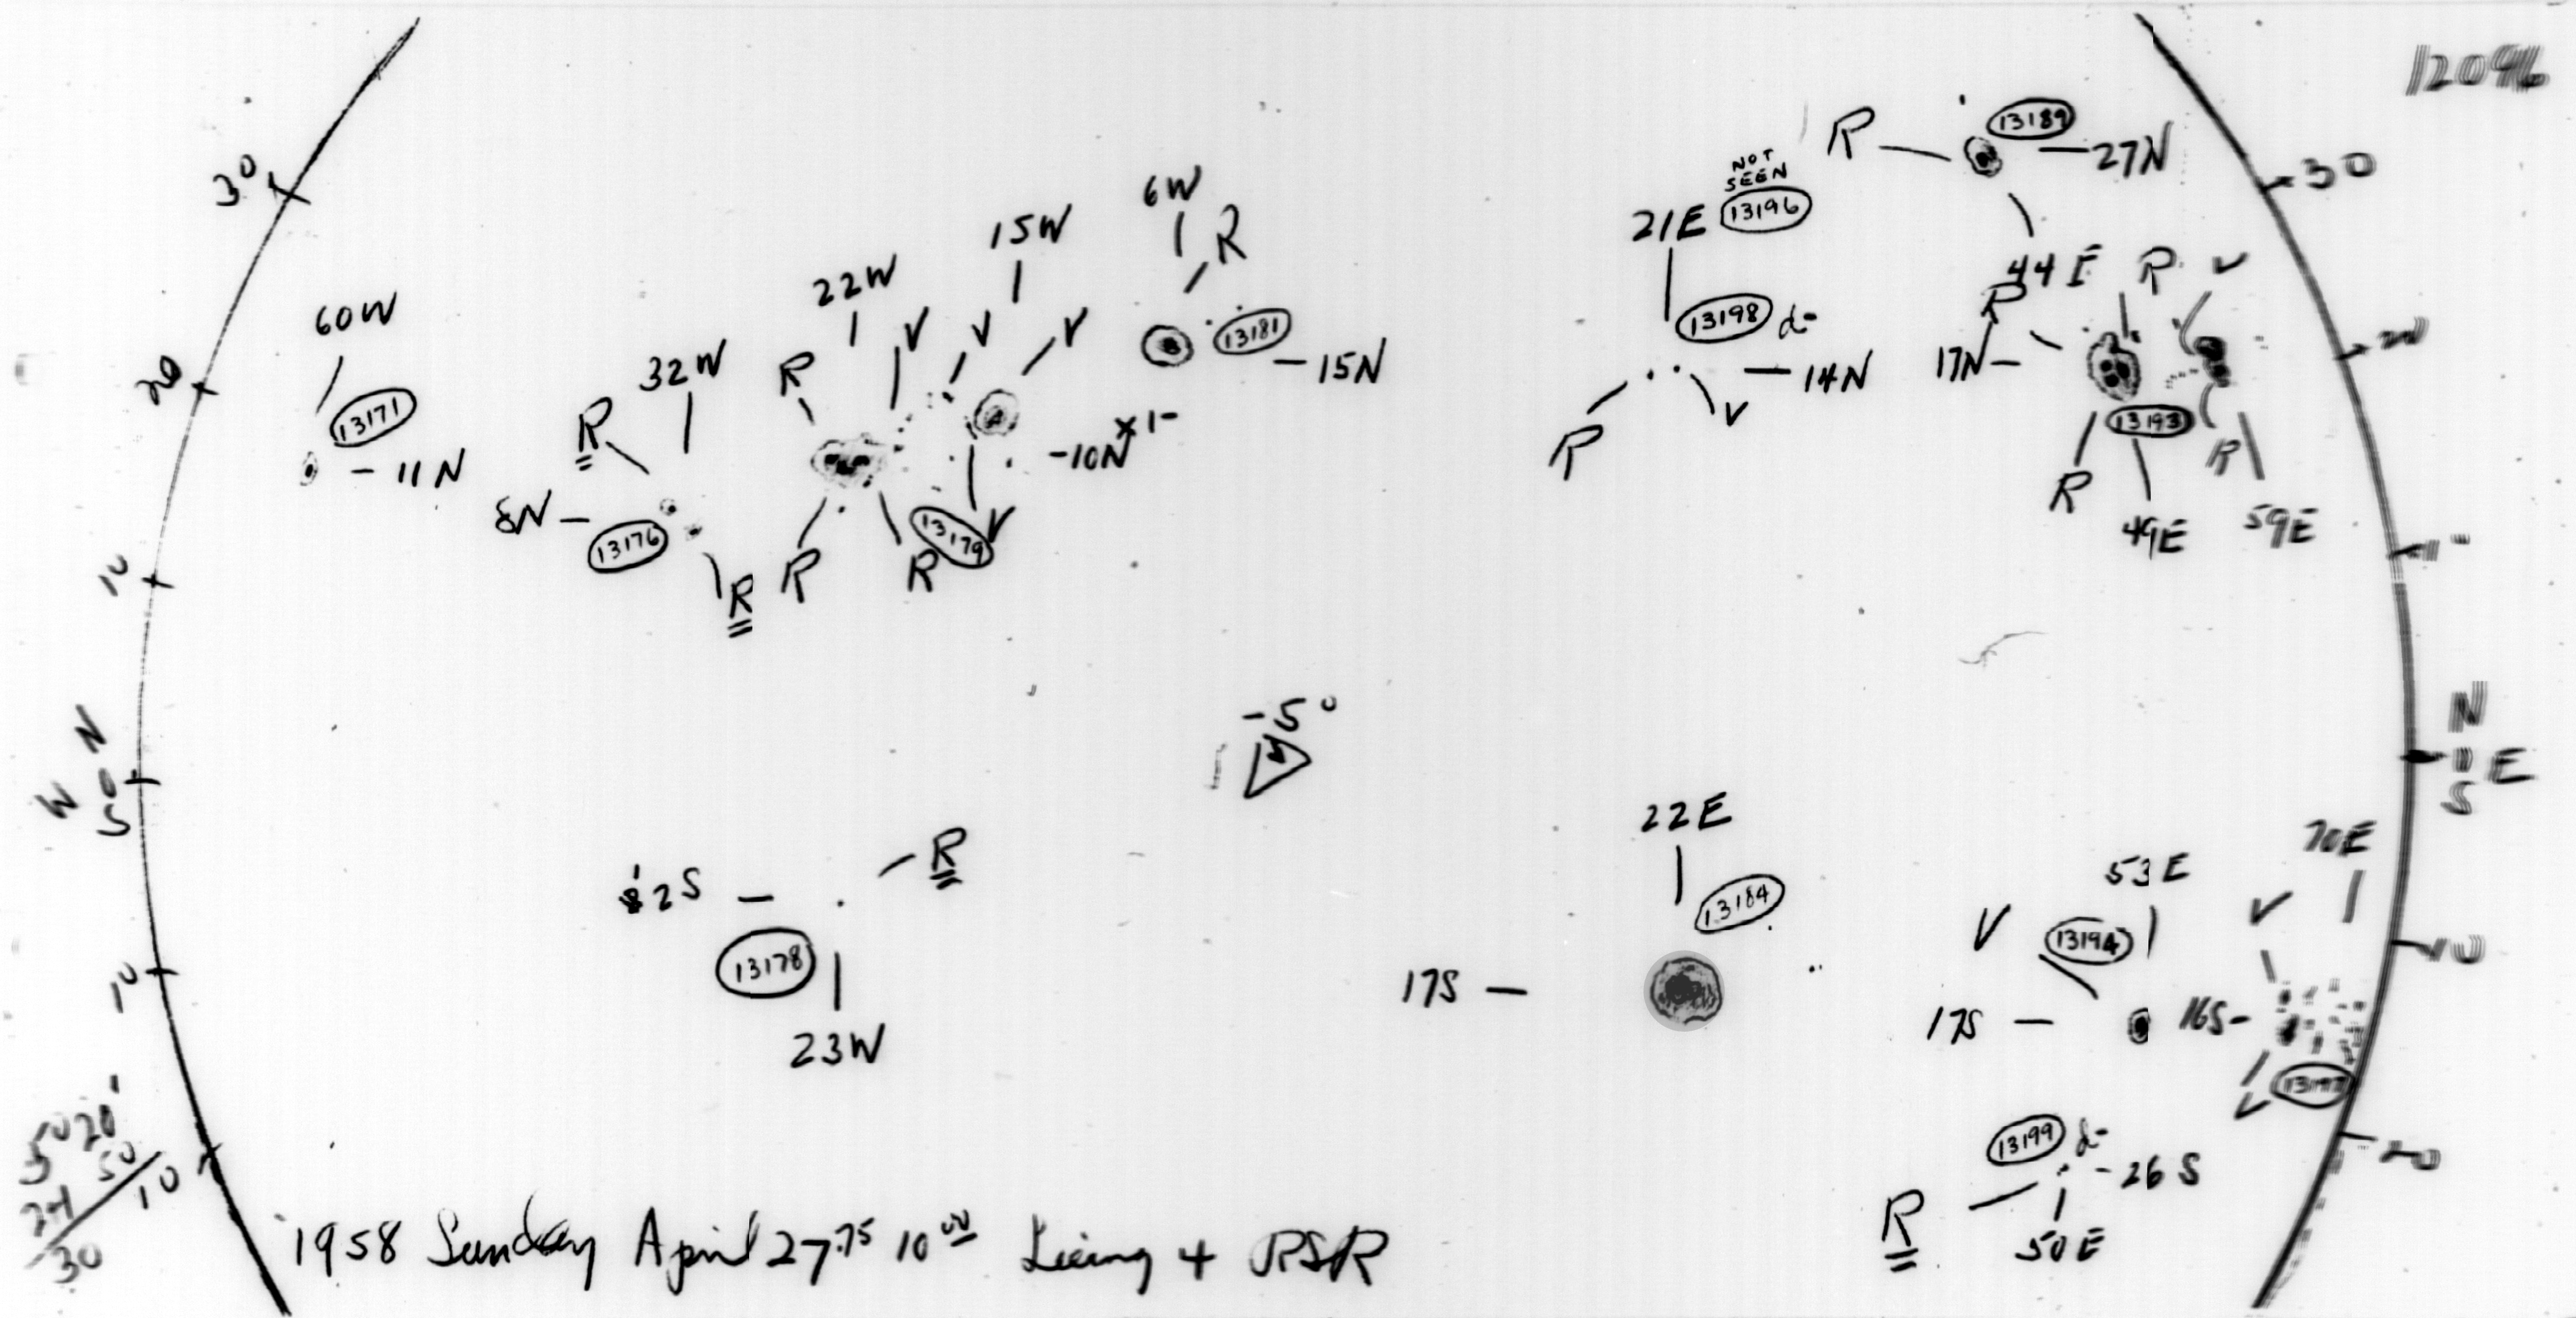 12096
R 13189 27N
30
NOT
SEEN
21E 13196
6W
R
15W
22W
60W
13171
11N
32W
R
R
V
V
V
13181
15N
13198 d-
14N
R
V
44E
R
R
V
17N
13193
R
R
49E
59E
30
20
20
10
8N
13176
R
R
R
13179
V
10N
x1-
-5°
N
0
S
W
N
0
S
E
12S
R
13178
23W
22E
13184
17S
53E
70E
V
13194
V
17S
16S
V
10
10
20
13199 d-
26S
R
50E
5° 20'
24 50
30 10
1958 Sunday April 27.75 10 00 + RSR